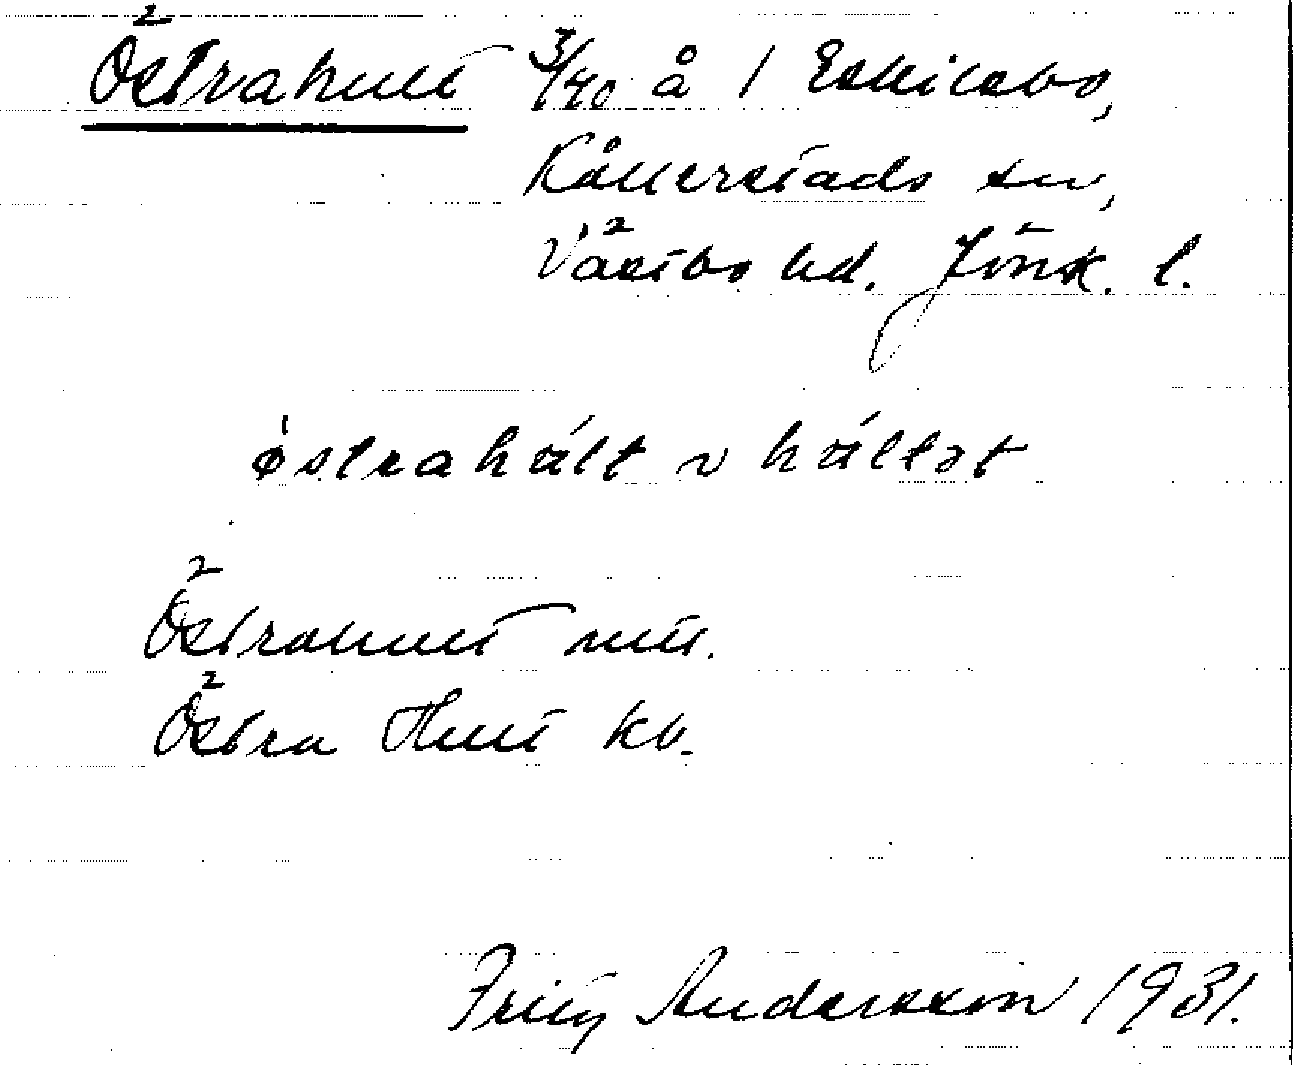 Östrahult 3/40 å 1 Eskilsbo,
Kållerstads sn,
Västbo hd. Jönk. l.
östrahúlt ~ húllət
Östrahult mtl.
Östra Hult kb.
Fritz Andersson 1931.